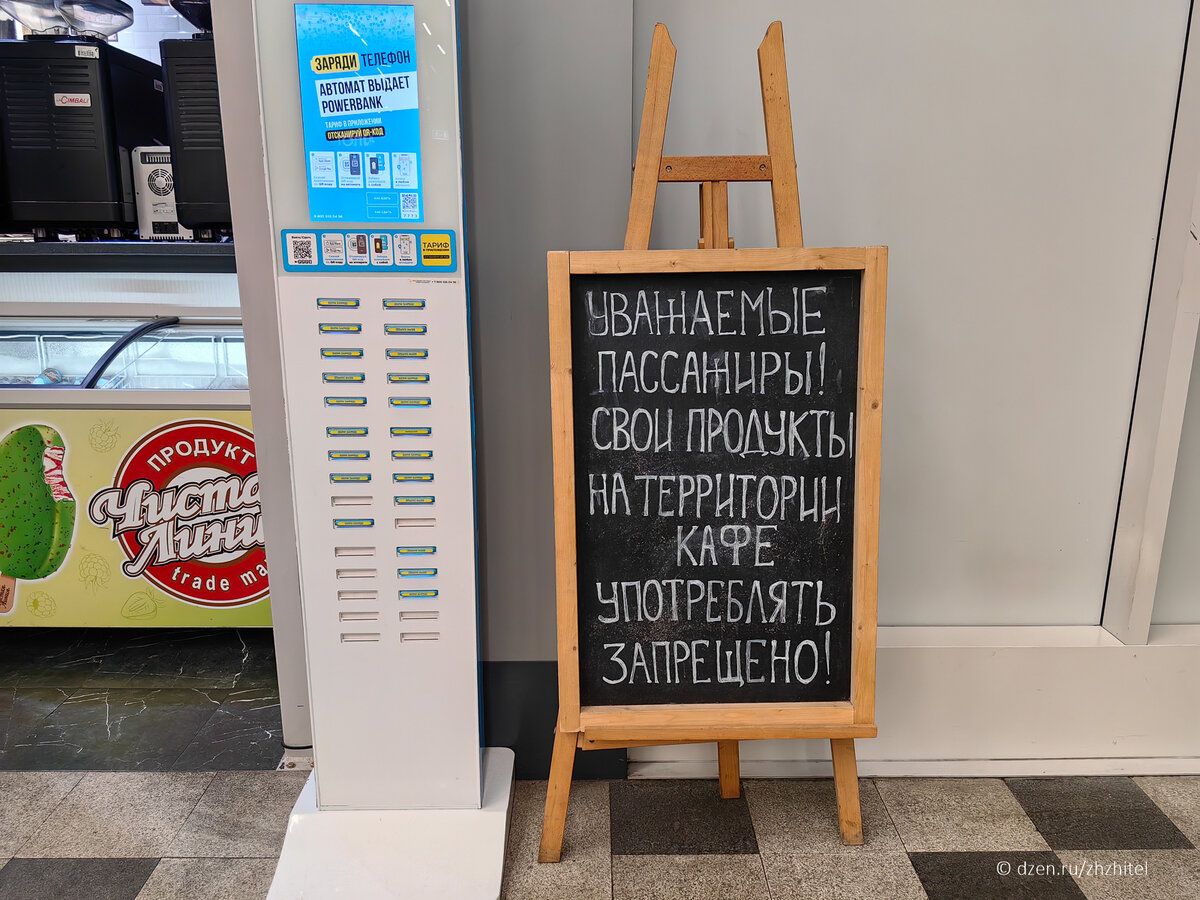 CIMBALI
ЗАРЯДИ ТЕЛЕФОН
АВТОМАТ ВЫДАЕТ
POWERBANK
ТАРИФ В ПРИЛОЖЕНИИ
ОТСКАНИРУЙ QR-КОД
ТАРИФ
ПРОДУКТ
Чистая
Линия
trade ma
УВАЖАЕМЫЕ
ПАССАЖИРЫ!
СВОИ ПРОДУКТЫ
НА ТЕРРИТОРИИ
КАФЕ
УПОТРЕБЛЯТЬ
ЗАПРЕЩЕНО!
© dzen.ru/zhzhitel